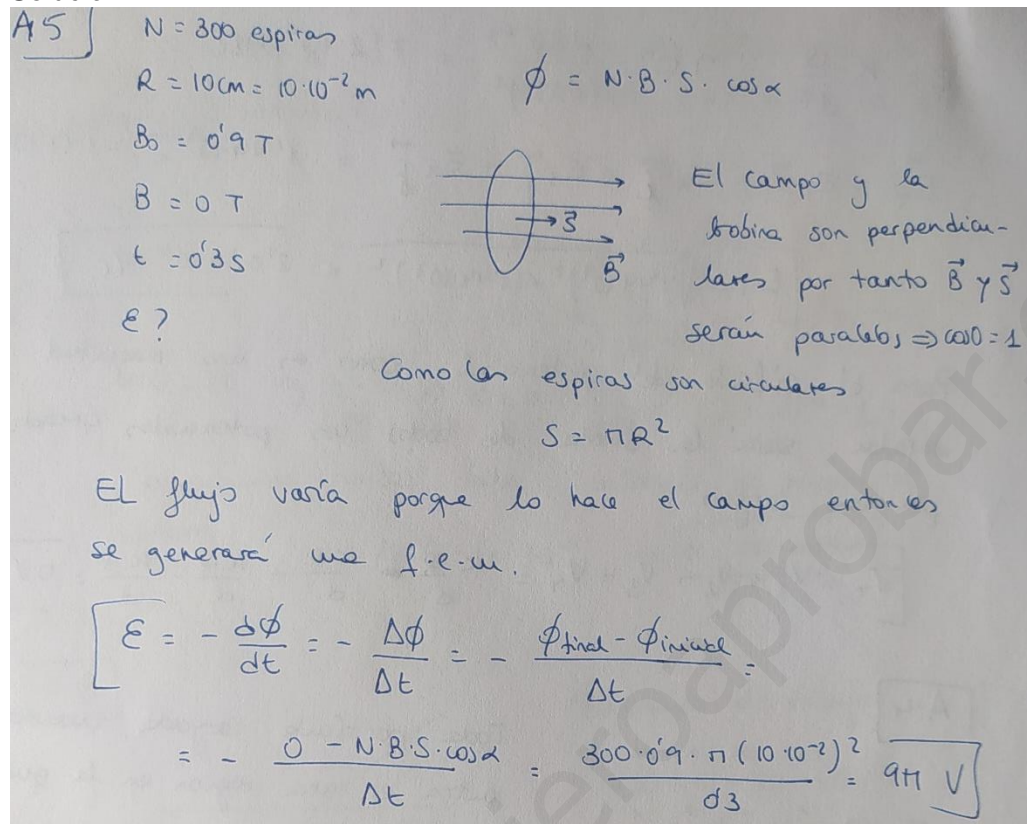 A5 N = 300 espiras
R = 10cm = 10·10⁻² m
φ = N·B·S·cosα
B₀ = 0'9 T
B = 0 T
t = 0'3 s
ε?
S⃗
B⃗
El campo y la
bobina son perpendicu-
lares por tanto B⃗ y S⃗
serán paralelos ⇒ cos0 = 1
Como las espiras son circulares
S = πR²
EL flujo varía porque lo hace el campo entonces
se generará una f.e.m.
ε = - dφ/dt = - Δφ/Δt = - (φfinal - φinicial)/Δt =
= - (0 - N·B·S·cosα)/Δt = (300·0'9·π(10·10⁻²)²)/0'3 = 9π V
eroaprobar